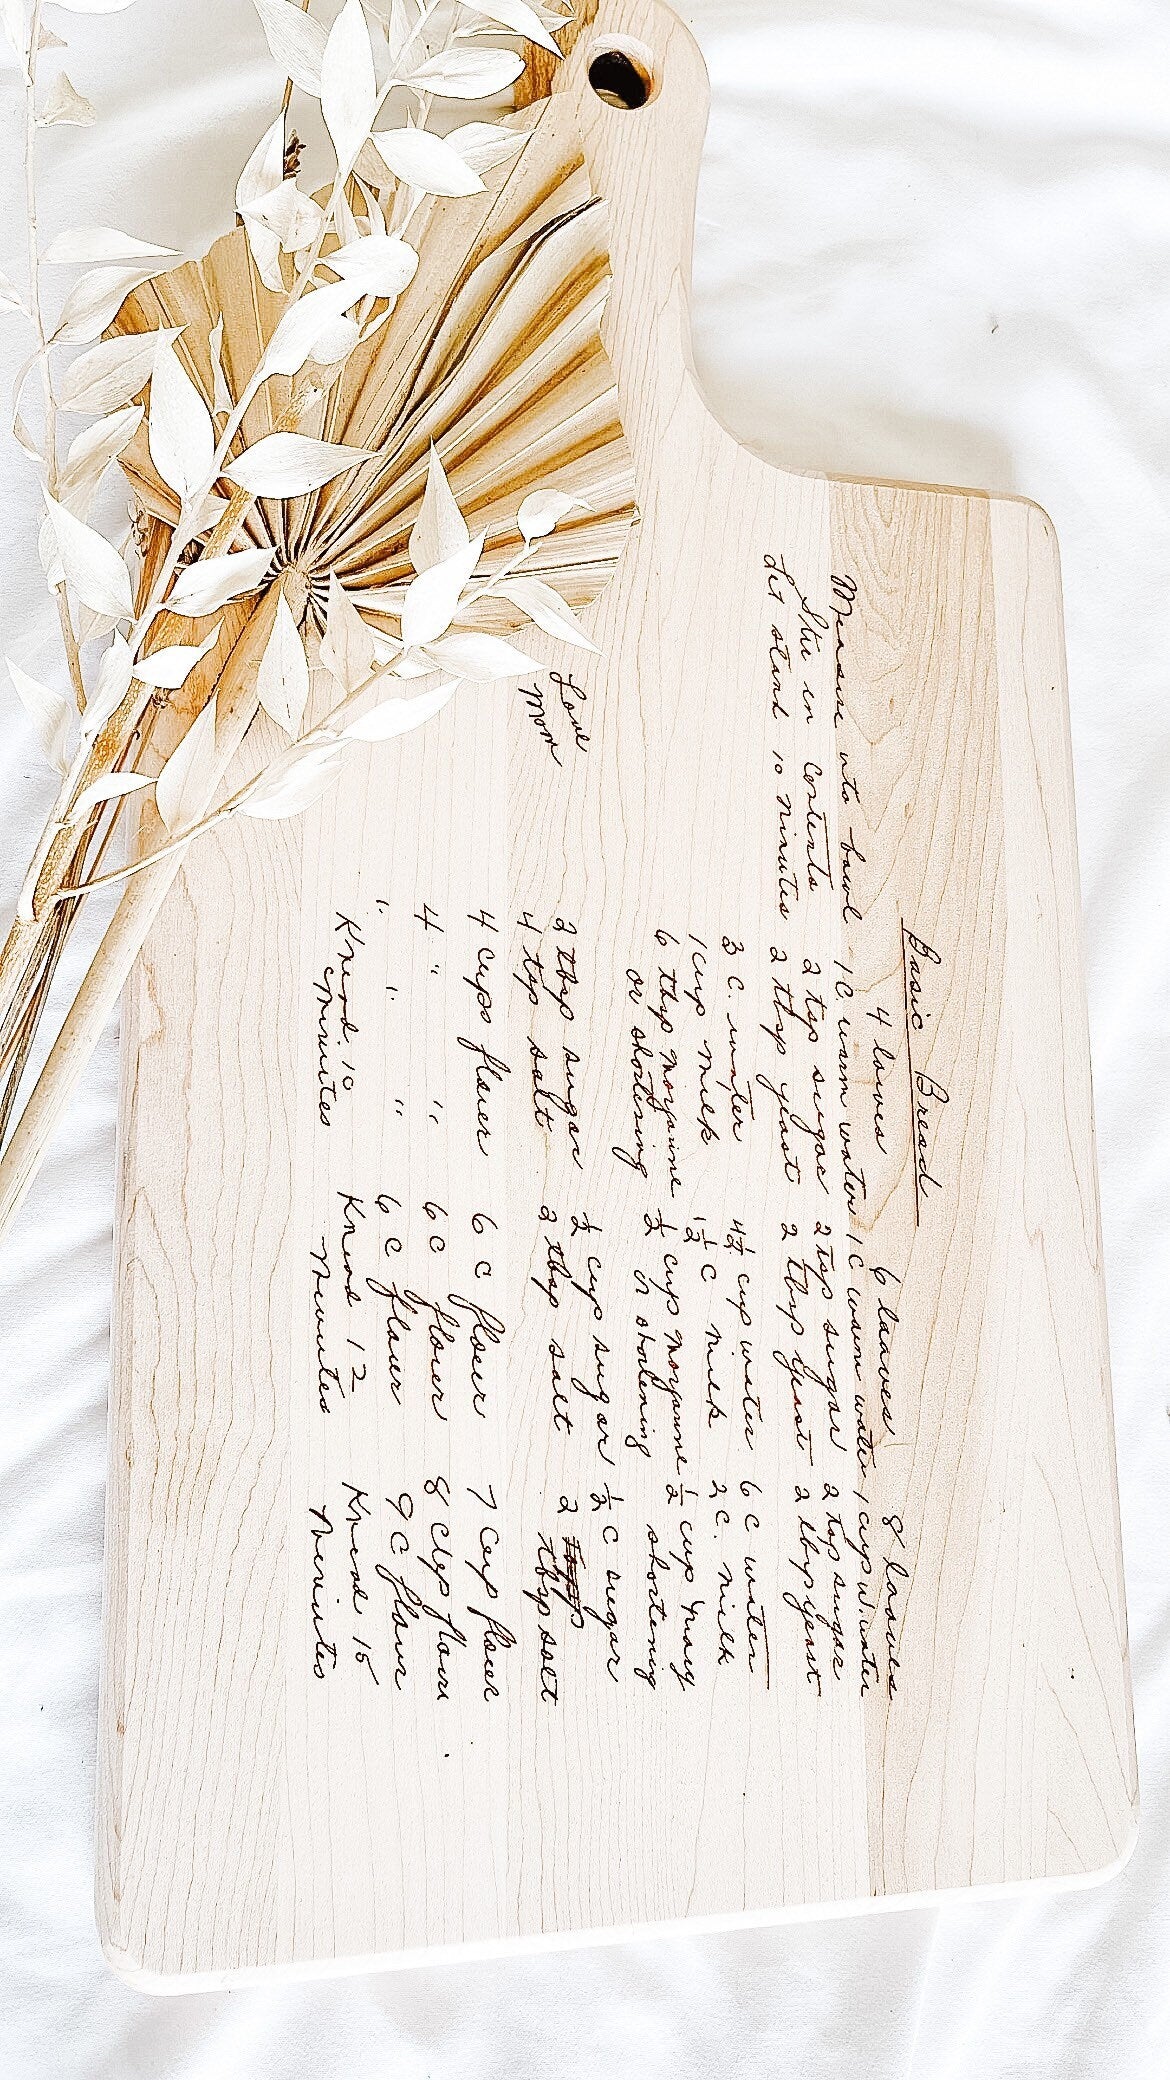 Basic Bread
4 loaves 6 loaves 8 loaves
Measure into bowl 1 C. warm water 1 C warm water 1 cup w. water
Stir in contents 2 tsp sugar 2 tsp sugar 2 tsp sugar
Let stand 10 minutes 2 tbsp yeast 2 tbsp yeast 2 tbsp yeast
3 C. water 4½ cup water 6 C water
1 cup milk 1½ C milk 2 C. milk
6 tbsp margarine ½ cup margarine ½ cup marg
or shortening ½ or shortening shortening
2 tbsp sugar ½ cup sugar ½ C sugar
4 tsp salt 2 tbsp salt 2 tbsp salt
4 cups flour 6 C flour 7 cup flour
4 " " 6 C flour 8 cup flour
" " " 6 C flour 9 C flour
Knead 10 Knead 12 Knead 15
minutes minutes minutes
Love
Mom